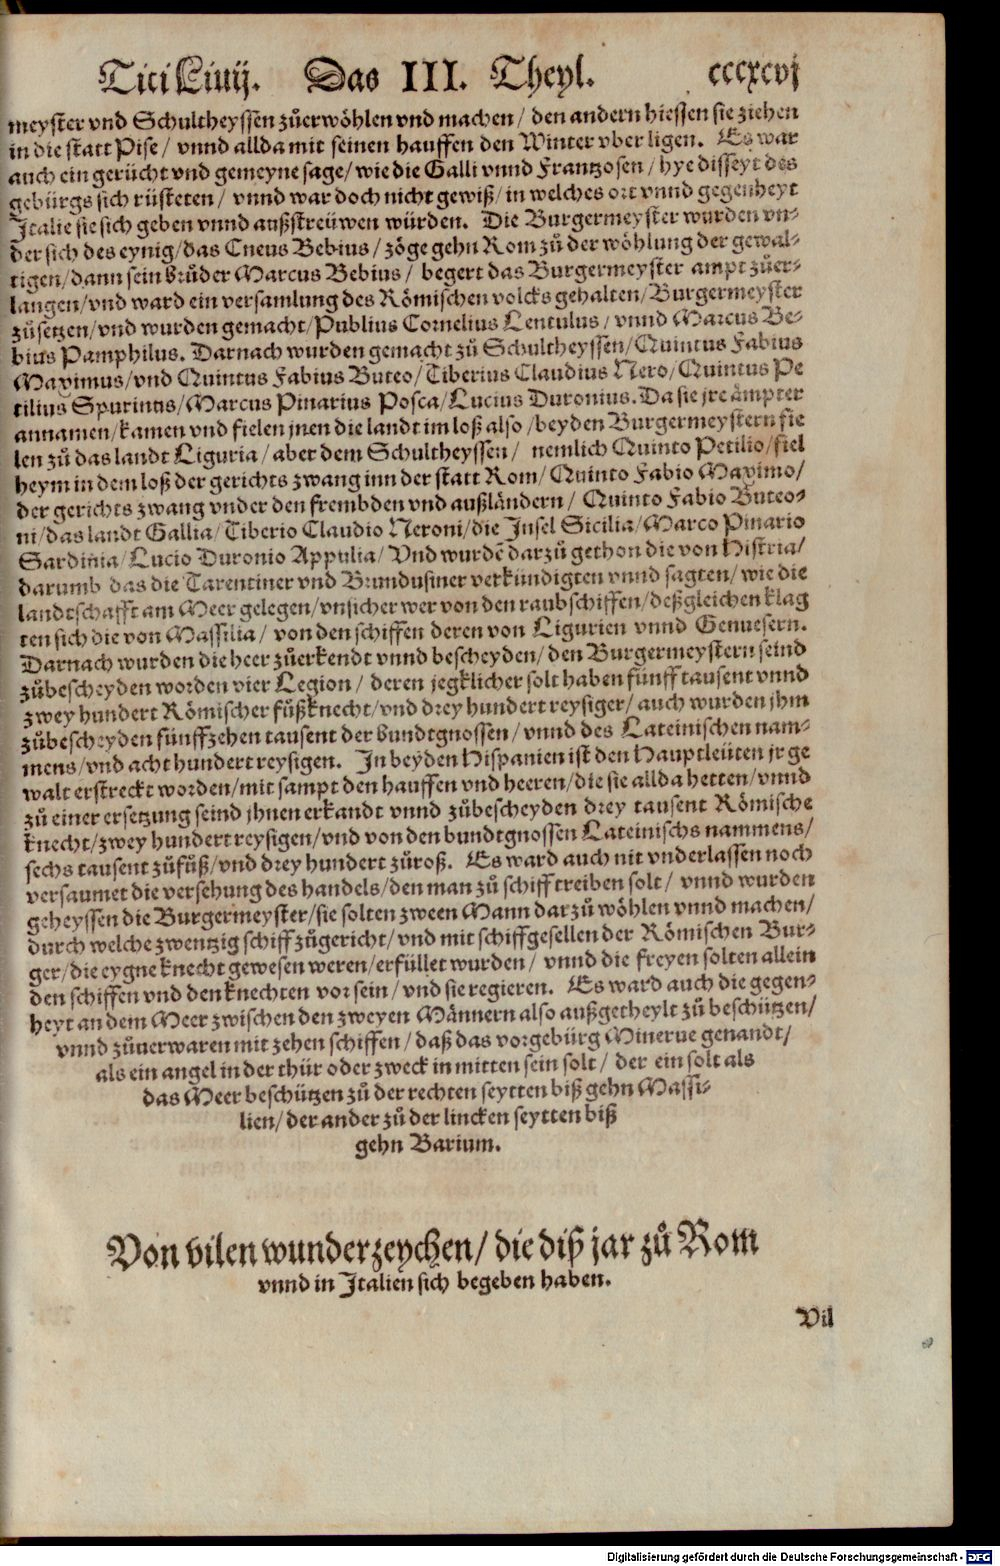 Titi Liuij. Das III. Theyl. cccxcvj
meyster vnd Schultheyssen zůerwöhlen vnd machen / den andern hiessen sie ziehen
in die statt Pise / vnnd allda mit seinen hauffen den Winter vber ligen. Es war
auch ein gerücht vnd gemeyne sage / wie die Galli vnnd Frantzosen / hye disseyt des
gebürgs sich rüsteten / vnnd war doch nicht gewiß / in welches ort vnnd gegenheyt
Italie sie sich geben vnnd außstreüwen würden. Die Burgermeyster wurden vn-
der sich des eynig / das Cneus Bebius / zöge gehn Rom zů der wöhlung der gewal-
tigen / dann sein brůder Marcus Bebius / begert das Burgermeyster ampt zůer-
langen / vnd ward ein versamlung des Römischen volcks gehalten / Burgermeyster
zůsetzen / vnd wurden gemacht / Publius Cornelius Lentulus / vnnd Marcus Be-
bius Pamphilus. Darnach wurden gemacht zů Schultheyssen / Quintus Fabius
Maximus / vnd Quintus Fabius Buteo / Tiberius Claudius Nero / Quintus Pe
tilius Spurinus / Marcus Pinarius Posca / Lucius Duronius. Da sie jre ämpter
annamen / kamen vnd fielen jnen die landt im loß also / beyden Burgermeystern fie
len zů das landt Liguria / aber dem Schultheyssen / nemlich Quinto Petilio / fiel
heym in dem loß der gerichts zwang inn der statt Rom / Quinto Fabio Maximo /
der gerichts zwang vnder den frembden vnd außländern / Quinto Fabio Buteo-
ni / das landt Gallia / Tiberio Claudio Neroni / die Insel Sicilia / Marco Pinario
Sardinia / Lucio Duronio Appulia / Vnd wurdẽ darzů gethon die von Histria /
darumb das die Tarentiner vnd Brundusiner verkündigten vnnd sagten / wie die
landtschafft am Meer gelegen / vnsicher wer von den raubschiffen / deßgleichen klag
ten sich die von Massilia / von den schiffen deren von Ligurien vnnd Genuesern.
Darnach wurden die heer zůerkendt vnnd bescheyden / den Burgermeystern seind
zůbescheyden worden vier Legion / deren jegklicher solt haben fünff tausent vnnd
zwey hundert Römischer fůßknecht / vnd drey hundert reysiger / auch wurden jhm
zůbescheyden fünffzehen tausent der bundtgnossen / vnnd des Lateinischen nam-
mens / vnd acht hundert reysigen. In beyden Hispanien ist den Hauptleüten jr ge
walt erstreckt worden / mit sampt den hauffen vnd heeren / die sie allda hetten / vnnd
zů einer ersetzung seind jhnen erkandt vnnd zůbescheyden drey tausent Römische
knecht / zwey hundert reysigen / vnd von den bundtgnossen Lateinischs nammens /
sechs tausent zůfůß / vnd drey hundert zůroß. Es ward auch nit vnderlassen noch
versaumet die versehung des handels / den man zů schiff treiben solt / vnnd wurden
geheyssen die Burgermeyster / sie solten zween Mann darzů wöhlen vnnd machen /
durch welche zwentzig schiff zůgericht / vnd mit schiffgesellen der Römischen Bur-
ger / die eygne knecht gewesen weren / erfüllet wurden / vnnd die freyen solten allein
den schiffen vnd den knechten vor sein / vnd sie regieren. Es ward auch die gegen-
heyt an dem Meer zwischen den zweyen Männern also außgetheylt zů beschützen /
vnnd zůuerwaren mit zehen schiffen / daß das vorgebürg Minerue genandt /
als ein angel in der thür oder zweck in mitten sein solt / der ein solt als
das Meer beschützen zů der rechten seytten biß gehn Massi-
lien / der ander zů der lincken seytten biß
gehn Barium.
Von vilen wunderzeychen / die diß jar zů Rom
vnnd in Italien sich begeben haben.
Vil
Digitalisierung gefördert durch die Deutsche Forschungsgemeinschaft - DFG